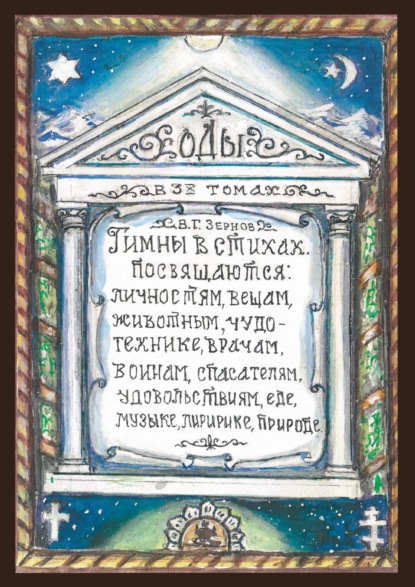 ОДЫ
В 3Х ТОМАХ
В.Г. ЗЕРНОВ
ГИМНЫ В СТИХАХ.
ПОСВЯЩАЮТСЯ:
ЛИЧНОСТЯМ, ВЕЩАМ,
ЖИВОТНЫМ, ЧУДО-
ТЕХНИКЕ, ВРАЧАМ,
ВОИНАМ, СПАСАТЕЛЯМ,
УДОВОЛЬСТВИЯМ, ЕДЕ,
МУЗЫКЕ, ЛИРИРИКЕ, ПРИРОДЕ